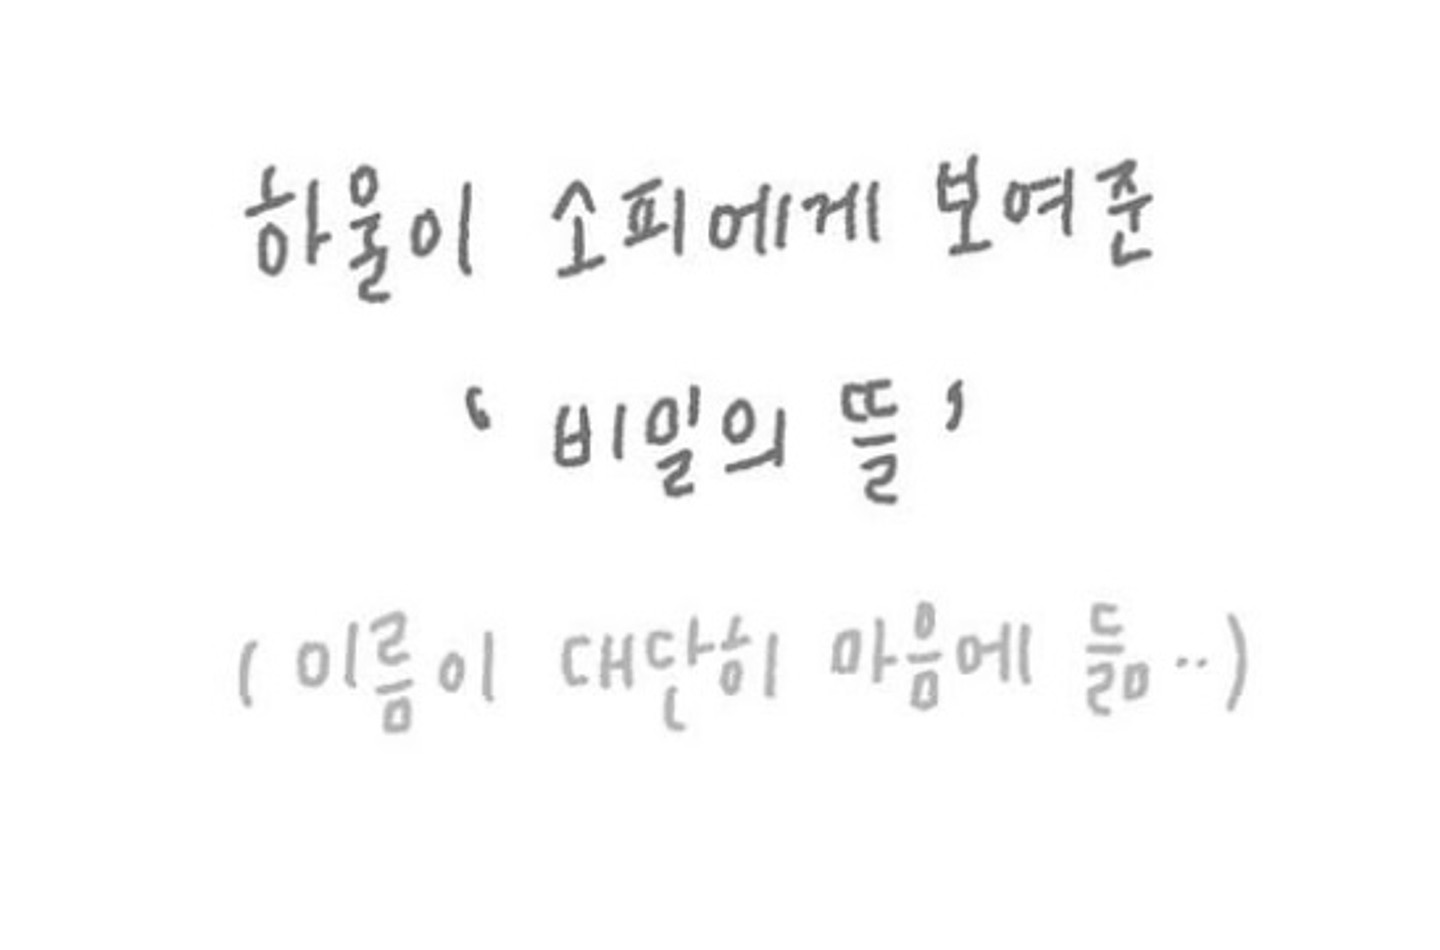 하울이 소피에게 보여준
‘비밀의 뜰’
(이름이 대단히 마음에 듦..)